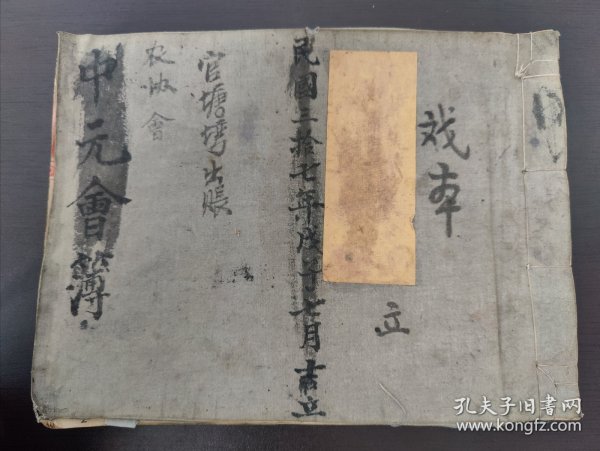 戏本
立
民國三拾七年戊子七月吉立
官塘灣出賬
农协會
中元會簿
孔夫子旧书网
www.kongfz.com